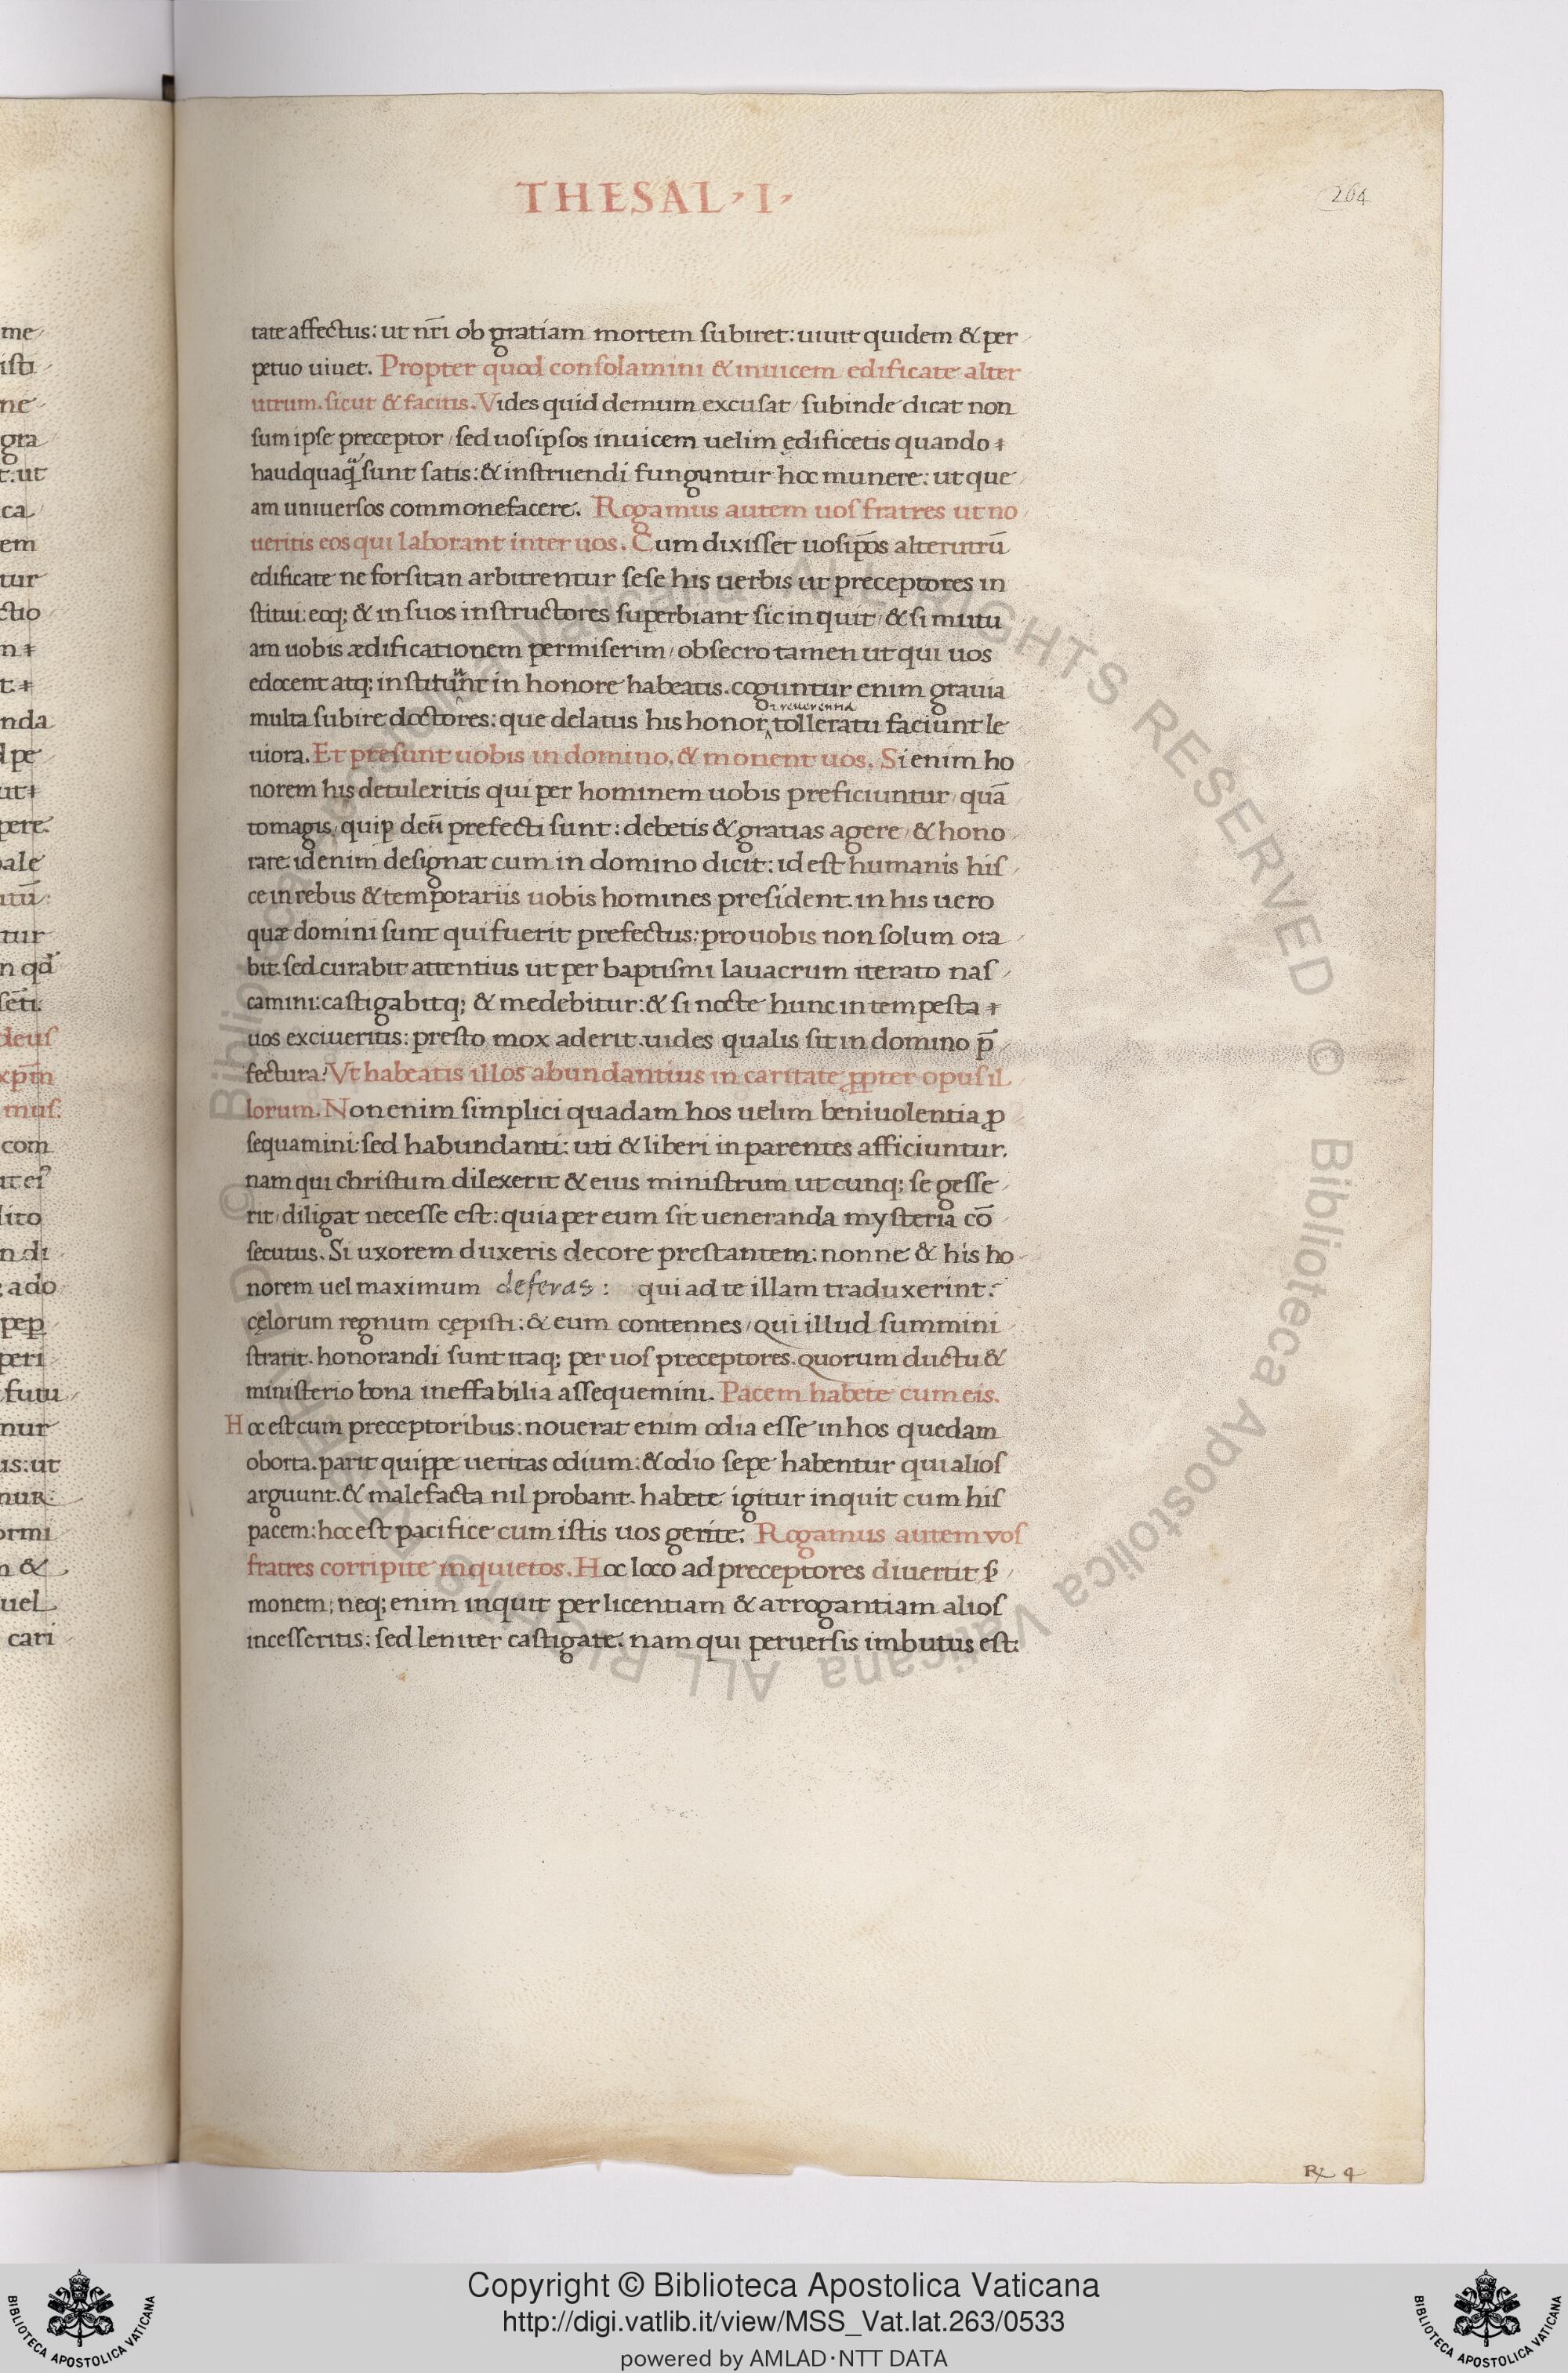 THESAL · I ·
264
tate affectus: ut nr̄i ob gratiam mortem subiret: uiuit quidem & per
petuo uiuet. Propter quod consolamini & inuicem edificate alter
utrum. sicut & facitis. Vides quid demum excusat / subinde dicat non
sum ipse preceptor / sed uosipsos inuicem uelim ędificetis quando
haudquaq̃ sunt satis: & instruendi funguntur hoc munere: ut que
am uniuersos commonefacere. Rogamus autem uos fratres ut no
ueritis eos qui laborant inter uos. Cum dixisset uosip̄os alterutrū
edificate ne forsitan arbitrentur sese his uerbis ut preceptores in
stitui: eoq; & in suos instructores superbiant sic inquit / & si mutu
am uobis ædificationem permiserim / obsecro tamen ut qui uos
edocent atq; instituunt in honore habeatis. coguntur enim grauia
multa subire doctores: que delatus his honor & reuerentia tolleratu faciunt le
uiora. Et presunt uobis in domino. & monent uos. Si enim ho
norem his detuleritis qui per hominem uobis preficiuntur / quā
tomagis / quip deū prefecti sunt: debetis & gratias agere / & hono
rare: id enim designat cum in domino dicit: id est humanis his
ce in rebus & temporariis uobis homines president. in his uero
quæ domini sunt qui fuerit prefectus: pro uobis non solum ora
bit. sed curabit attentius ut per baptismi lauacrum iterato nas
camini: castigabitq; & medebitur: & si nocte hunc intempesta
uos exciueritis: presto mox aderit. uides qualis sit in domino p̄
fectura? Vt habeatis illos abundantius in caritate ꝓpter opus il
lorum. Non enim simplici quadam hos uelim beniuolentia ꝓ
sequamini: sed habundanti: uti & liberi in parentes afficiuntur.
nam qui christum dilexerit & eius ministrum utcunq; se gesse
rit / diligat necesse est: quia per eum sit ueneranda mysteria cō
secutus. Si uxorem duxeris decore prestantem: nonne & his ho
norem uel maximum deferas: qui ad te illam traduxerint?
cęlorum regnum cępisti: & eum contennes / qui illud summini
strarit. honorandi sunt itaq; per uos preceptores. quorum ductu &
ministerio bona ineffabilia assequemini. Pacem habete cum eis.
Hoc est cum preceptoribus: nouerat enim odia esse in hos quedam
oborta. parit quippe ueritas odium: & odio sepe habentur qui alios
arguunt. & malefacta nil probant. habete igitur inquit cum his
pacem: hoc est pacifice cum istis uos gerite. Rogamus autem vos
fratres corripite inquietos. Hoc loco ad preceptores diuertit ser
monem; neq; enim inquit per licentiam & arrogantiam alios
incesseritis: sed leniter castigate. nam qui peruersis imbutus est:
Copyright © Biblioteca Apostolica Vaticana
http://digi.vatlib.it/view/MSS_Vat.lat.263/0533
powered by AMLAD·NTT DATA